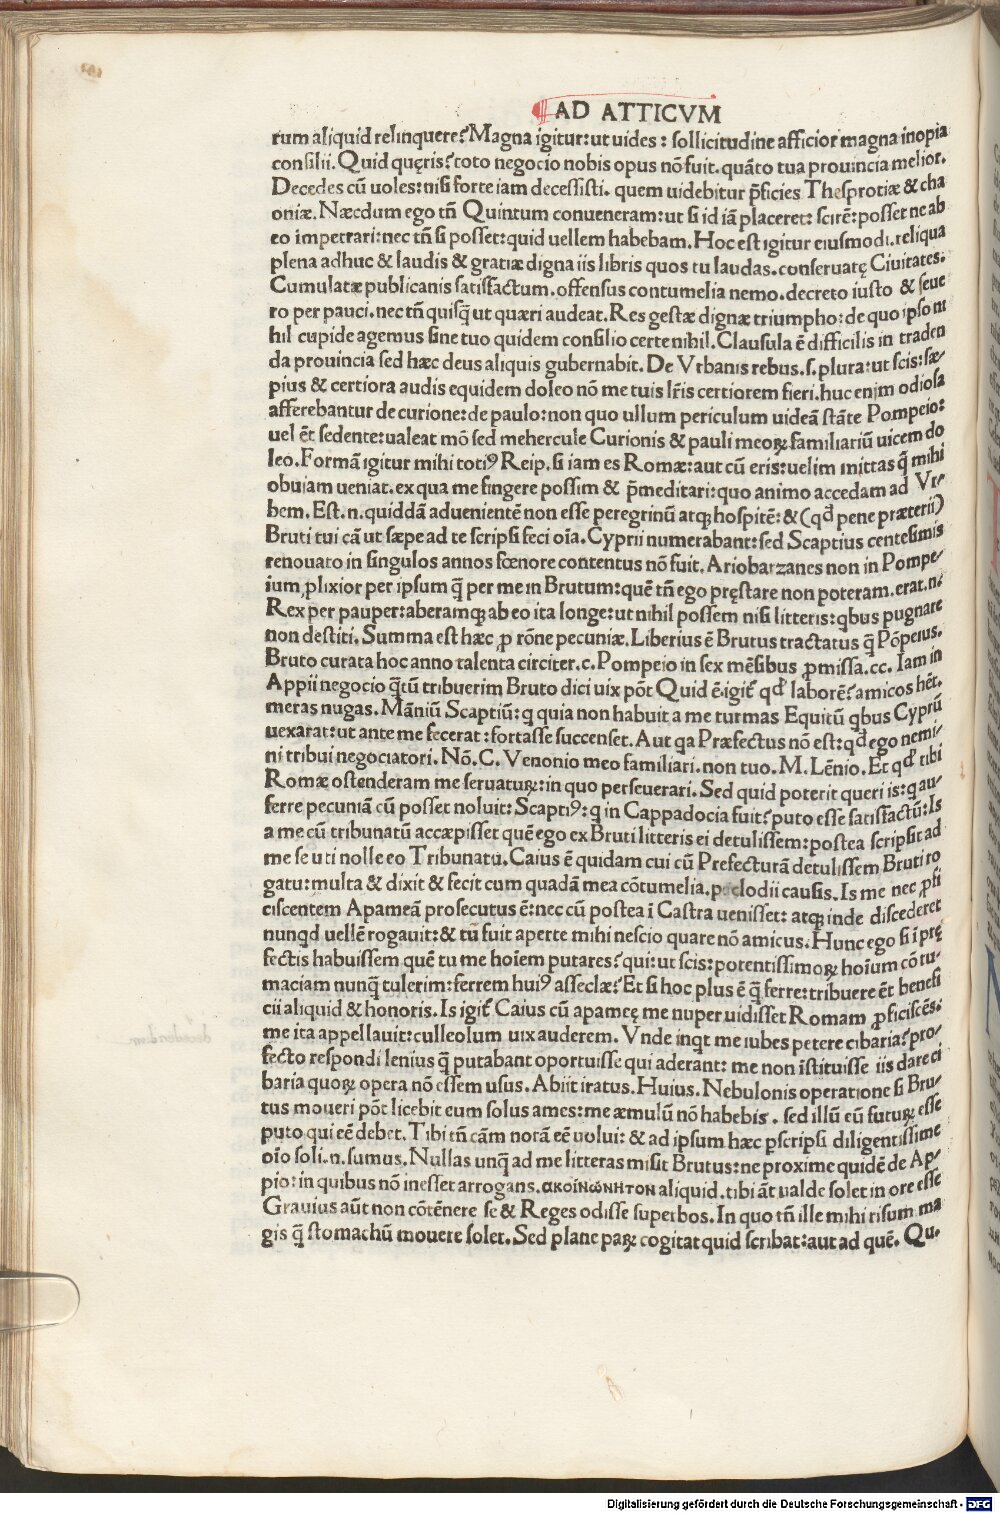 AD ATTICVM
rum aliquid relinquere? Magna igitur: ut uides: sollicitudine afficior magna inopia
consilii. Quid quęris? toto negocio nobis opus nō fuit. quāto tua prouincia melior.
Decedes cū uoles: nisi forte iam decessisti. quem uidebitur p̄ficies Thesprotiæ & cha
oniæ. Næcdum ego tn̄ Quintum conueneram: ut si id iā placeret: scirē: posset ne ab
eo impetrari: nec tn̄ si posset: quid uellem habebam. Hoc est igitur eiusmodi. reliqua
plena adhuc & laudis & gratiæ digna iis libris quos tu laudas. conseruatę Ciuitates.
Cumulatæ publicanis satisfactum. offensus contumelia nemo. decreto iusto & seue
ro per pauci. nec tn̄ quisq̄ ut quæri audeat. Res gestæ dignæ triumpho: de quo ipso ni
hil cupide agemus sine tuo quidem consilio certe nihil. Clausula ē difficilis in traden
da prouincia sed hæc deus aliquis gubernabit. De Vrbanis rebus .s. plura: ut scis: sæ⸗
pius & certiora audis equidem doleo nō me tuis lr̄is certiorem fieri. huc enim odiosa
afferebantur de curione: de paulo: non quo ullum periculum uideā stāte Pompeio:
uel ēt sedente: ualeat mō sed mehercule Curionis & pauli meoꝝ familiariū uicem do
leo. Formā igitur mihi totiꝰ Reip. si iam es Romæ: aut cū eris: uelim mittas q̄ mihi
obuiam ueniat. ex qua me fingere possim & p̄meditari: quo animo accedam ad Vr⸗
bem. Est .n. quiddā aduenientē non esse peregrinū atqꝫ hospitē: & (qd̄ pene præterii)
Bruti tui cā ut sæpe ad te scripsi feci oīa. Cyprii numerabant: sed Scaptius centesimis
renouato in singulos annos fœnore contentus nō fuit. Ariobarzanes non in Pompe⸗
ium ꝓlixior per ipsum q̄ per me in Brutum: quē tn̄ ego pręstare non poteram. erat .n.
Rex per pauper: aberamqꝫ ab eo ita longe: ut nihil possem nisi litteris: qbus pugnare
non destiti. Summa est hæc ꝓ rōne pecuniæ. Liberius ē Brutus tractatus q̄ Pōpeius.
Bruto curata hoc anno talenta circiter .c. Pompeio in sex mēsibus ꝓmissa .cc. Iam in
Appii negocio q̄tū tribuerim Bruto dici uix pōt Quid ē igit̄ qd̄ laborē? amicos hēt.
meras nugas. Māniū Scaptiū: q quia non habuit a me turmas Equitū qbus Cyprū
uexarat: ut ante me fecerat: fortasse succenset. Aut qa Præfectus nō est: qd̄ ego nemi⸗
ni tribui negociatori. Nō. C. Venonio meo familiari. non tuo. M. Lēnio. Et qd̄ tibi
Romæ ostenderam me seruatuꝝ: in quo perseuerari. Sed quid poterit queri is: q au⸗
ferre pecuniā cū posset noluit: Scaptiꝰ: q in Cappadocia fuit? puto esse satisfactū: Is
a me cū tribunatū accæpisset quē ego ex Bruti litteris ei detulissem: postea scripsit ad
me se uti nolle eo Tribunatu. Caius ē quidam cui cū Prefecturā detulissem Bruti ro
gatu: multa & dixit & fecit cum quadā mea cōtumelia. p. clodii causis. Is me nec ꝓfi
ciscentem Apameā prosecutus ē: nec cū postea ī Castra uenisset: atqꝫ inde discederet
nunqd uellē rogauit: & tū fuit aperte mihi nescio quare nō amicus. Hunc ego si ī prę
fectis habuissem quē tu me hoīem putares? qui: ut scis: potentissimoꝝ hoīum cōtu⸗
maciam nunq̄ tulerim: ferrem huiꝰ asseclæ? Et si hoc plus ē q̄ ferre: tribuere ēt benefi
cii aliquid & honoris. Is igit̄ Caius cū apameę me nuper uidisset Romam ꝓficiscēs:
me ita appellauit: culleolum uix auderem. Vnde inqt me iubes petere cibaria? pro⸗
fecto respondi lenius q̄ putabant oportuisse qui aderant: me non īstituisse iis dare ci
baria quoꝝ opera nō essem usus. Abiit iratus. Huius. Nebulonis operatione si Bru⸗
tus moueri pōt licebit eum solus ames: me æmulū nō habebis. sed illū eū futuꝝ esse
puto qui eē debet. Tibi tn̄ cām notā eē uolui: & ad ipsum hæc ꝑscripsi diligentissime
oīo soli .n. sumus. Nullas unq̄ ad me litteras misit Brutus: ne proxime quidē de Ap⸗
pio: in quibus nō inesset arrogans. ακοίνώνητον aliquid. tibi āt ualde solet in ore esse
Grauius aūt non cōtēnere se & Reges odisse superbos. In quo tn̄ ille mihi risum ma
gis q̄ stomachū mouere solet. Sed plane paꝝ cogitat quid scribat: aut ad quē. Qu.
Digitalisierung gefördert durch die Deutsche Forschungsgemeinschaft - DFG